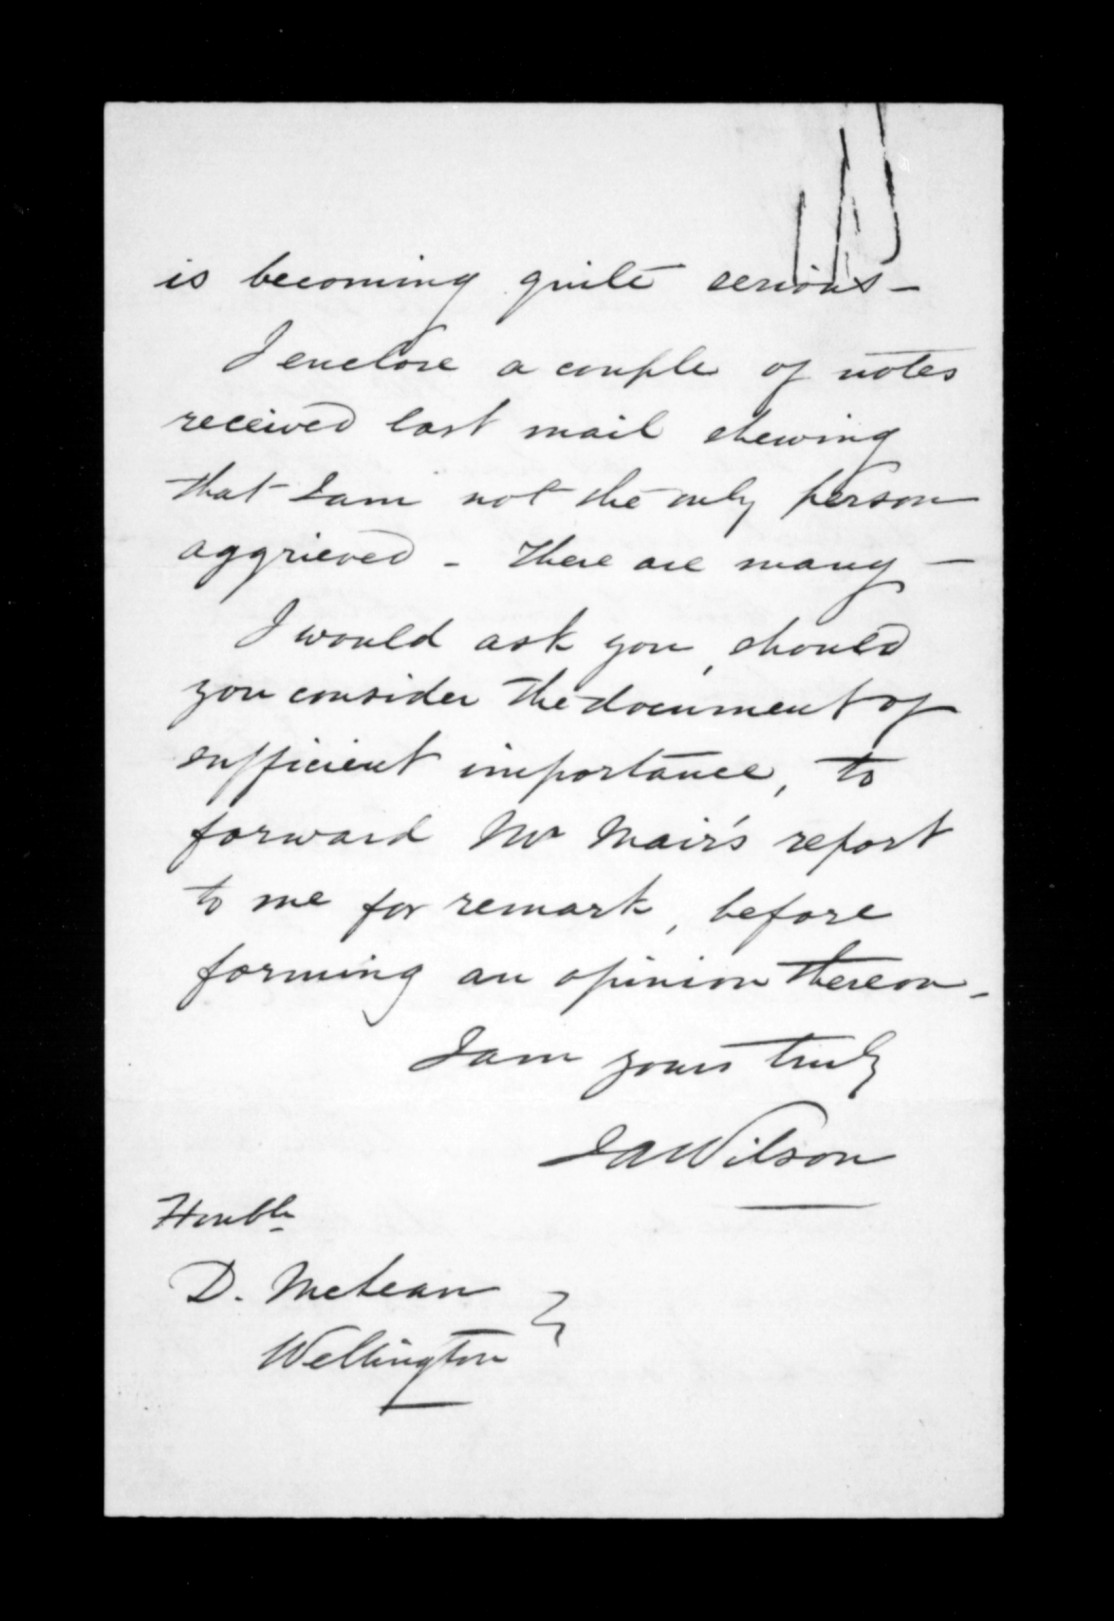 is becoming quite serious -
I enclose a couple of notes
received last mail shewing
that I am not the only person
aggrieved - There are many -
I would ask you, should
you consider the document of
sufficient importance, to
forward Mr Mair's report
to me for remark, before
forming an opinion thereon -
I am yours truly
JAWilson
Honble
D. McLean
Wellington